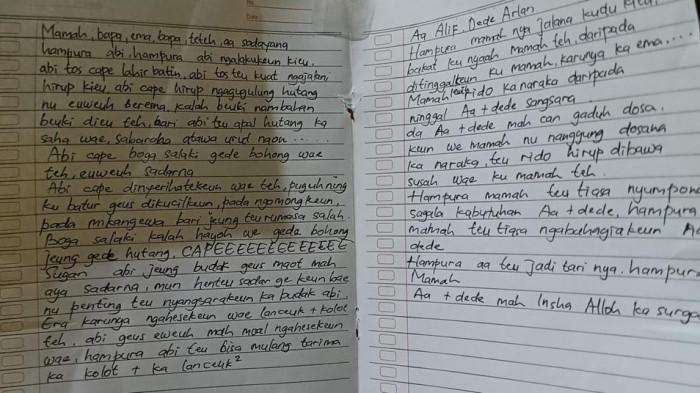 No.
Date
Mamah, bapa, ema, bapa, teteh, aa sadayana
hampura abi, hampura abi ngalakukeun kieu.
abi tos cape lahir batin, abi tos teu kuat ngajalani
hirup kieu, abi cape hirup ngagugulung hutang
nu euweuh berema, kalah beuki nambahan
beuki dieu teh, bari abi teu apal hutang ka
saha wae, sabaroha atawa urut naon .....
Abi cape boga salaki gede bohong wae
teh, euweuh sadarna
Abi cape dinyerihatekeun wae teh, puguh ning
ku batur geus dikucilkeun, pada ngomongkeun,
pada mikangewa bari jeung teu rumasa salah.
Boga salaki kalah hayoh we gede bohong
jeung gede hutang, CAPEEEEEEEEEEEEE
Sugan abi jeung budak geus maot mah
aya sadarna, mun henteu sadar ge keun bae
nu penting teu nyangsarakeun ka budak abi.
Era karunya ngahesekeun wae lanceuk + kolot
teh, abi geus euweuh mah moal ngahesekeun
wae, hampura abi teu bisa mulang tarima
ka kolot + ka lanceuk²
Aa Alif, Dede Arlan
Hampura mamah nya jalana kudu kieu,
bakat ku nyaah mamah teh, daripada
ditinggalkeun ku mamah, karunya ka ema...
Mamah rido ka naraka daripada
ninggal Aa + dede sangsara
da Aa + dede mah can gaduh dosa,
keun we mamah nu nanggung dosana
ka naraka, teu rido hirup dibawa
susah wae ku mamah teh.
Hampura mamah teu tiasa nyumpone
sagala kabutuhan Aa + dede, hampura
mamah teu tiasa ngabahagiakeun
dede
Hampura aa teu jadi tari nya. hampura
Mamah
Aa + dede mah Insha Alloh ka surga